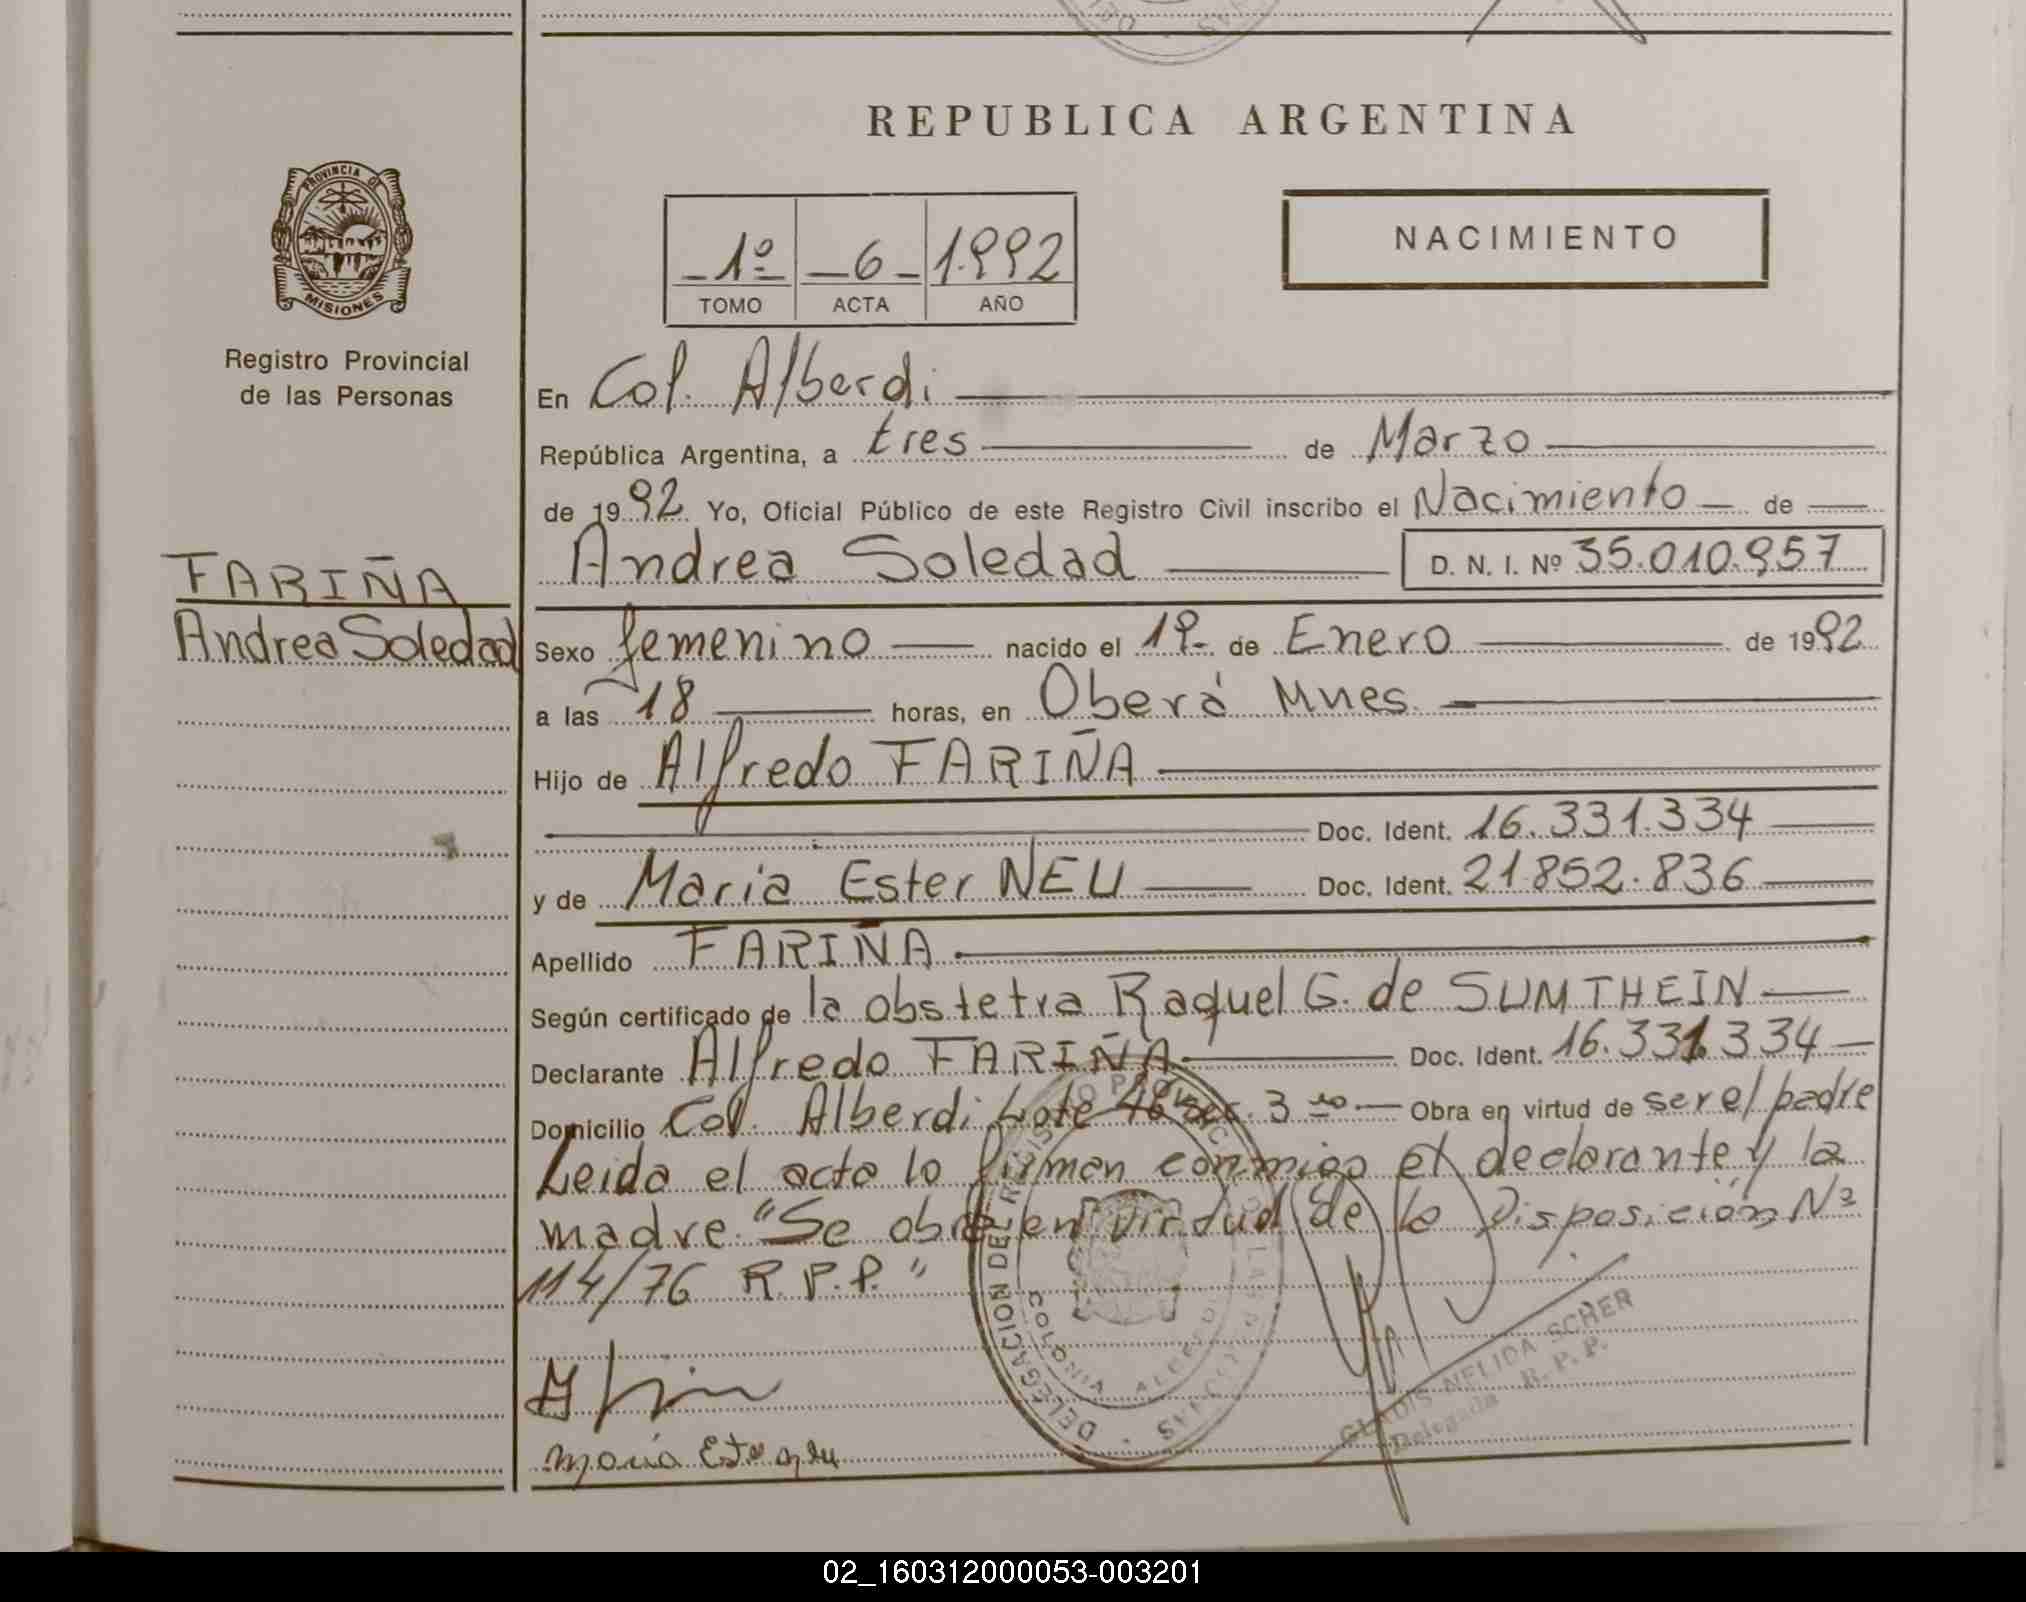 REPUBLICA ARGENTINA
PROVINCIA DE MISIONES
Registro Provincial
de las Personas
1º 6 1.992
TOMO ACTA AÑO
NACIMIENTO
En Col. Alberdi
República Argentina, a tres de Marzo
de 1992 Yo, Oficial Público de este Registro Civil inscribo el Nacimiento de
Andrea Soledad D. N. I. Nº 35.010.957
FARIÑA
Andrea Soledad
Sexo femenino nacido el 19 de Enero de 1992
a las 18 horas, en Oberá Mnes.
Hijo de Alfredo FARIÑA
Doc. Ident. 16.331.334
y de Maria Ester NEU Doc. Ident. 21.852.836
Apellido FARIÑA
Según certificado de la obstetra Raquel G. de SUMTHEIN
Declarante Alfredo FARIÑA Doc. Ident. 16.331.334
Domicilio Col. Alberdi Lote 46 sec. 3 Obra en virtud de ser el padre
Leido el acta lo firman conmigo el declarante y la
madre "Se obra en virtud de la Disposición Nº
114/76 R.P.P."
DELEGACION DEL REGISTRO PROVINCIAL DE LAS PERSONAS
COLONIA ALBERDI
GLADIS NELIDA SCHER
Delegada R. P. P.
Maria Ester Neu
02_160312000053-003201